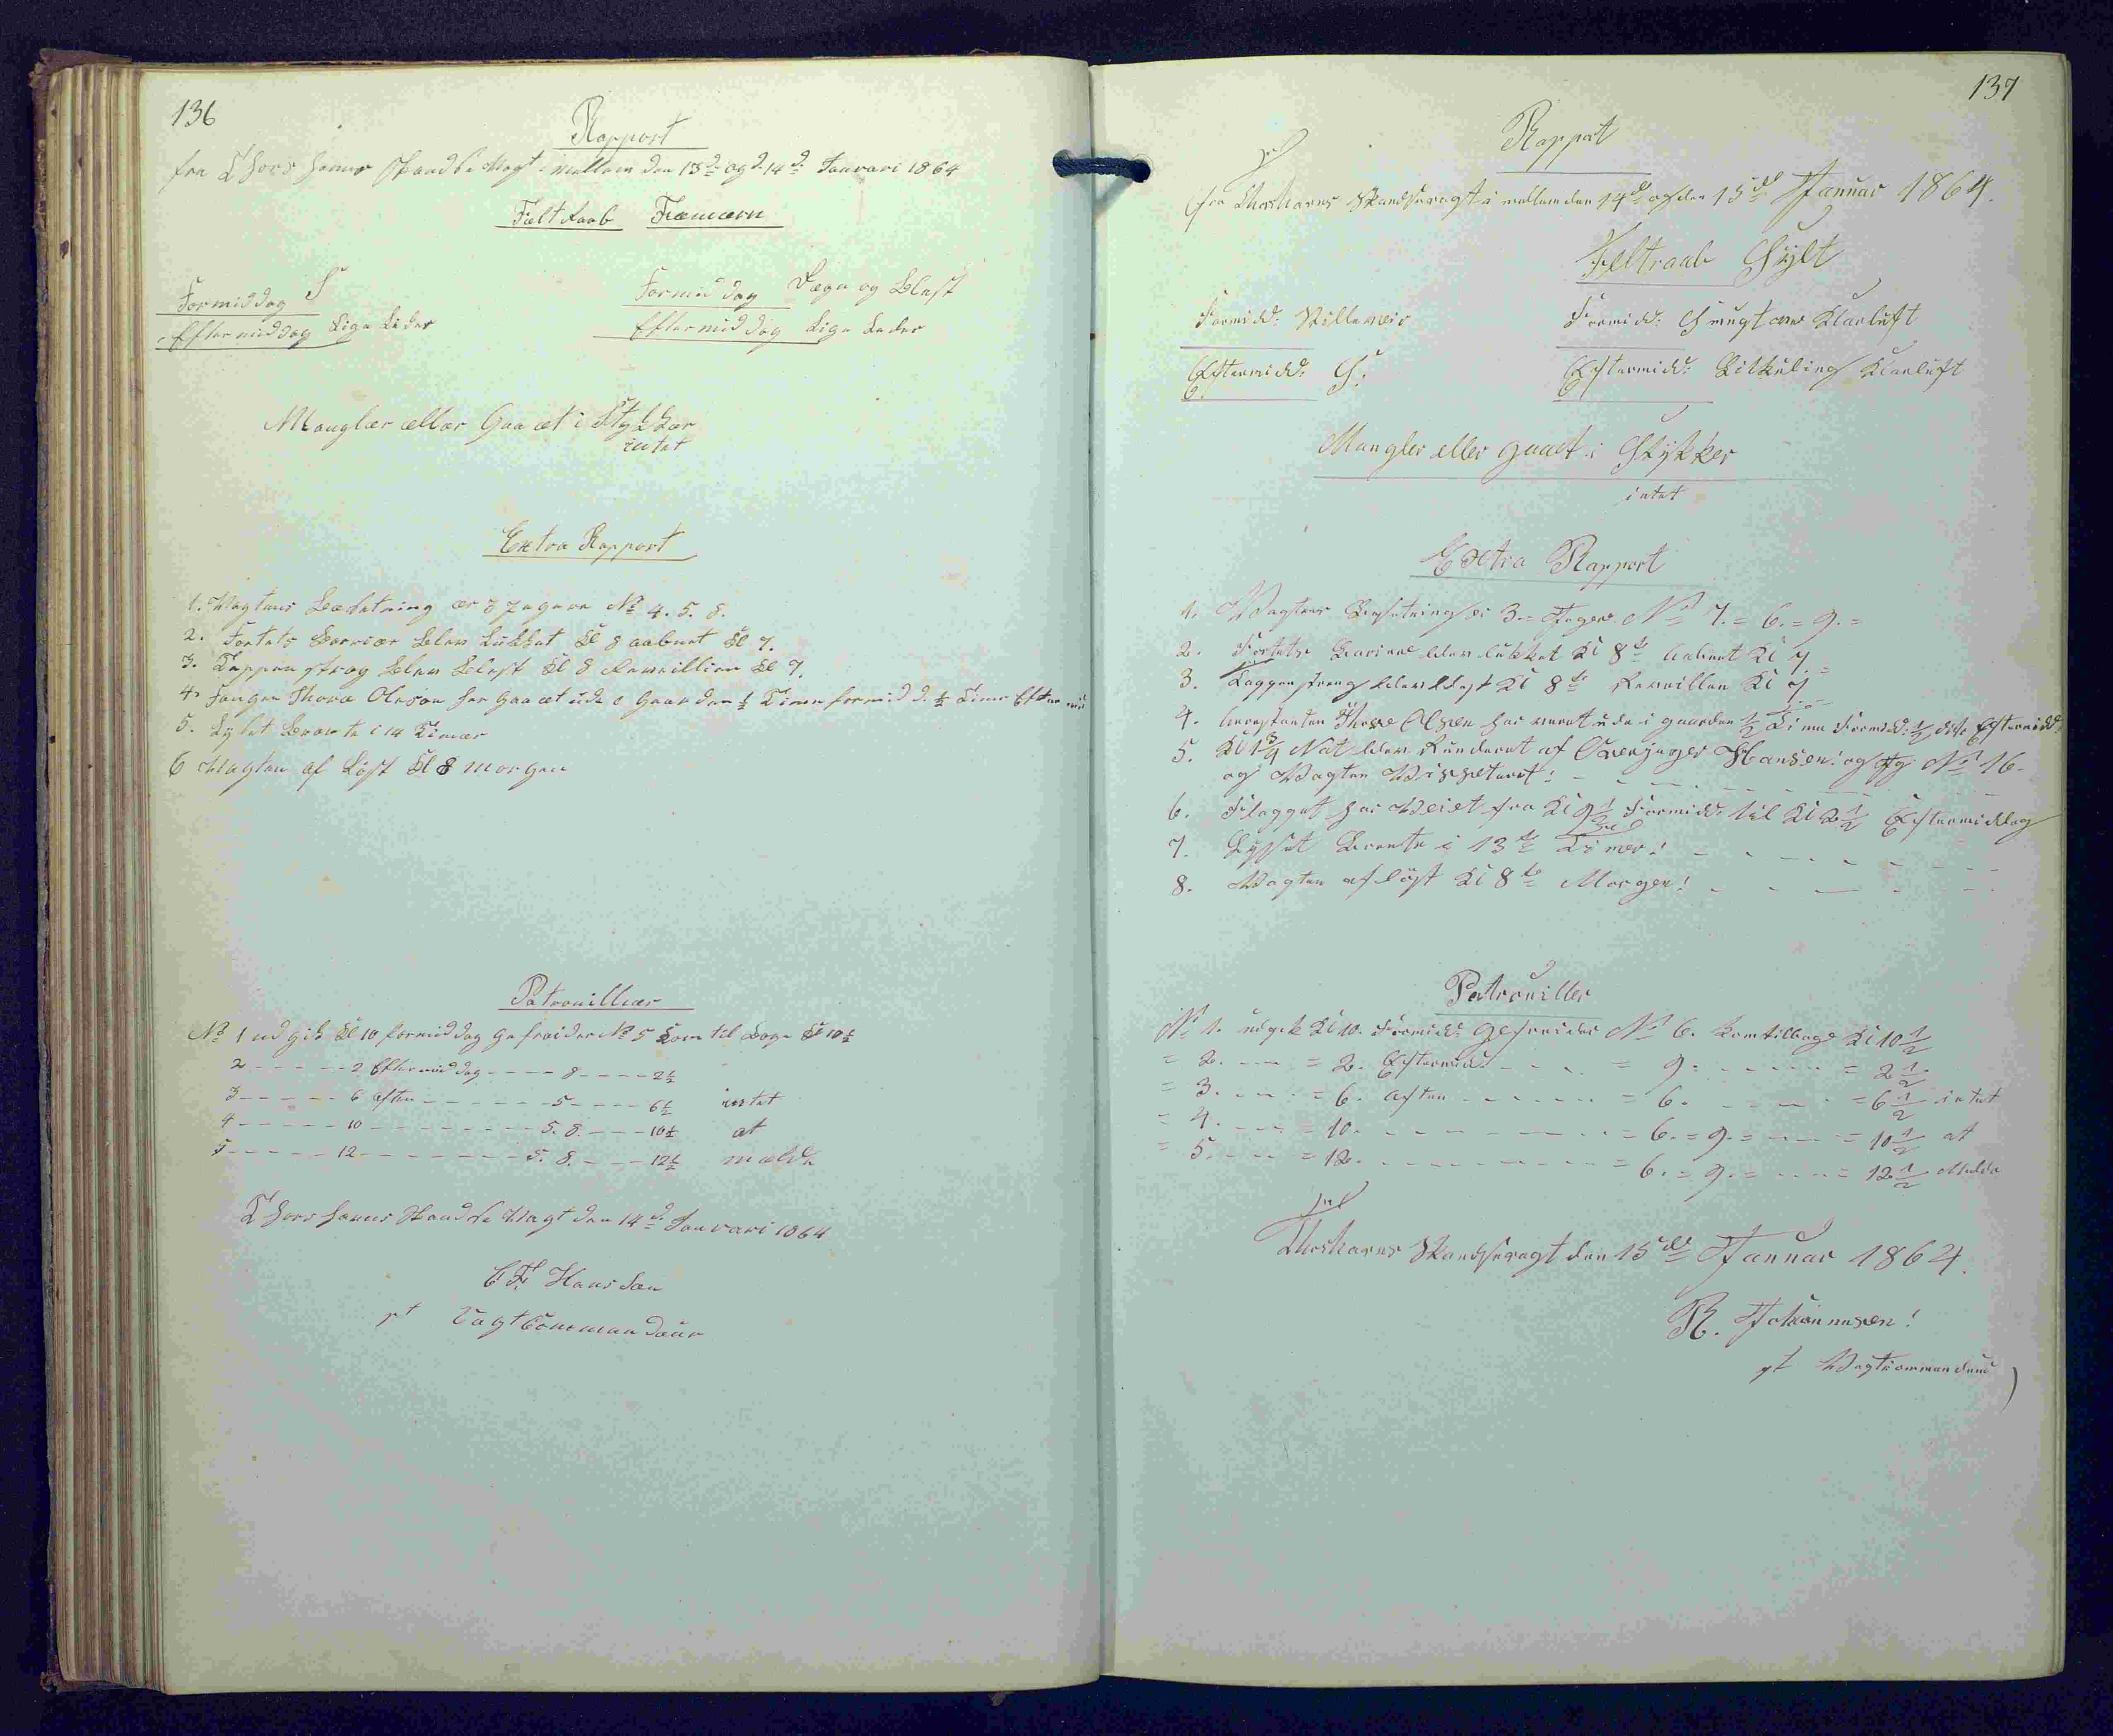 136
Rapport
fra Thorshavns Skandse Vagt imellem den 13d og d 14d Januari 1864
Felt Raab Fæmærn
Formiddag S
Eftermiddag Lige Leder
Formiddag Regn og Blæst
Eftermiddag Lige Leder
Mangler eller Gaaet i Stykker
intet
Extra Rapport
1. Vagtens Besetning er 3 Jægere No 4. 5. 8.
2. Fortets Barriær blev Lukket Kl 8 aabnet Kl 7.
3. Tappenstrog blev blæst Kl 8 Reveillien Kl 7.
4. Fangen Thora Olesøn har Gaaet ude i Gaarden ½ Timer formidd. ½ Time Eftermid
5. Lyset brænte i 14 Timer
6 Vagten af Løst Kl 8 Morgen
Patrouillier
No 1 ud gik Kl 10 formiddag gefreider No 5 kom til bage Kl 10½
2 - - - - - 2 Eftermiddag - - - - 8 - - - - 2½
3 - - - - - 6 Aften - - - - - - 5 - - - - 6½ intet
4 - - - - - 10 - - - - - - - - 5. 8. - - - 10½ at
5 - - - - - 12 - - - - - - - - 5. 8. - - - 12½ melde
Thorshavns Skandse Vagt den 14d Januari 1864
Hansen
pt Vagt Commandeur
137
Rapport
fra Thorshavns Skandsevagt i mellem den 14de og den 15de Januar 1864.
Feltraab Sylt
Formidd: Stilleveir
Eftermidd: S:
Formidd: Smugt og Klarluft
Eftermidd: Litkuling Klarluft
Mangler eller gaaet i Stykker
intet
Extra Rapport
1. Vagtens Besetning er 3. = Jægere No 7. = 6. = 9. =
2. Fortets Bariere blev lukket Kl 8te aabnet Kl 7. =
3. Tappenstreng blev blæst Kl 8te Reveillen Kl 7
4. Arrestanten Thore Olsen har været ude i gaarden ½ Time Formidd: ½ dito Eftermidd:
5. Kl 1¾ Nat blev Runderet af Overjæger Hansen! og Jg. No 16.
og Vagten Visseteret! - - - - - - -
6. Flagget har Veiet fra Kl 9½ Formidd. til Kl 2½ Eftermiddag
7. Lysset Brente i 13te Timer! - - - - - - -
8. Vagten afløst Kl 8te Morgen! - - - - - - -
Patrouiller
No 1. udgik Kl 10. Formidd: Gefreider No 6. Kom tilbage Kl 10½
= 2. - - - = 2. Eftermidd: - - - = 9. - - - - - = 2½
= 3. - - - = 6. Aften - - - - - - = 6. - - - - - = 6½ intet
= 4. - - - = 10. - - - - - - - - = 6. = 9. = - - - = 10½ at
= 5. - - - = 12. - - - - - - - - = 6. = 9. = - - - = 12½ Melde
Thorshavns Skandsevagt den 15de Januar 1864.
R. Johannesen!
pt Vagtkommandeur